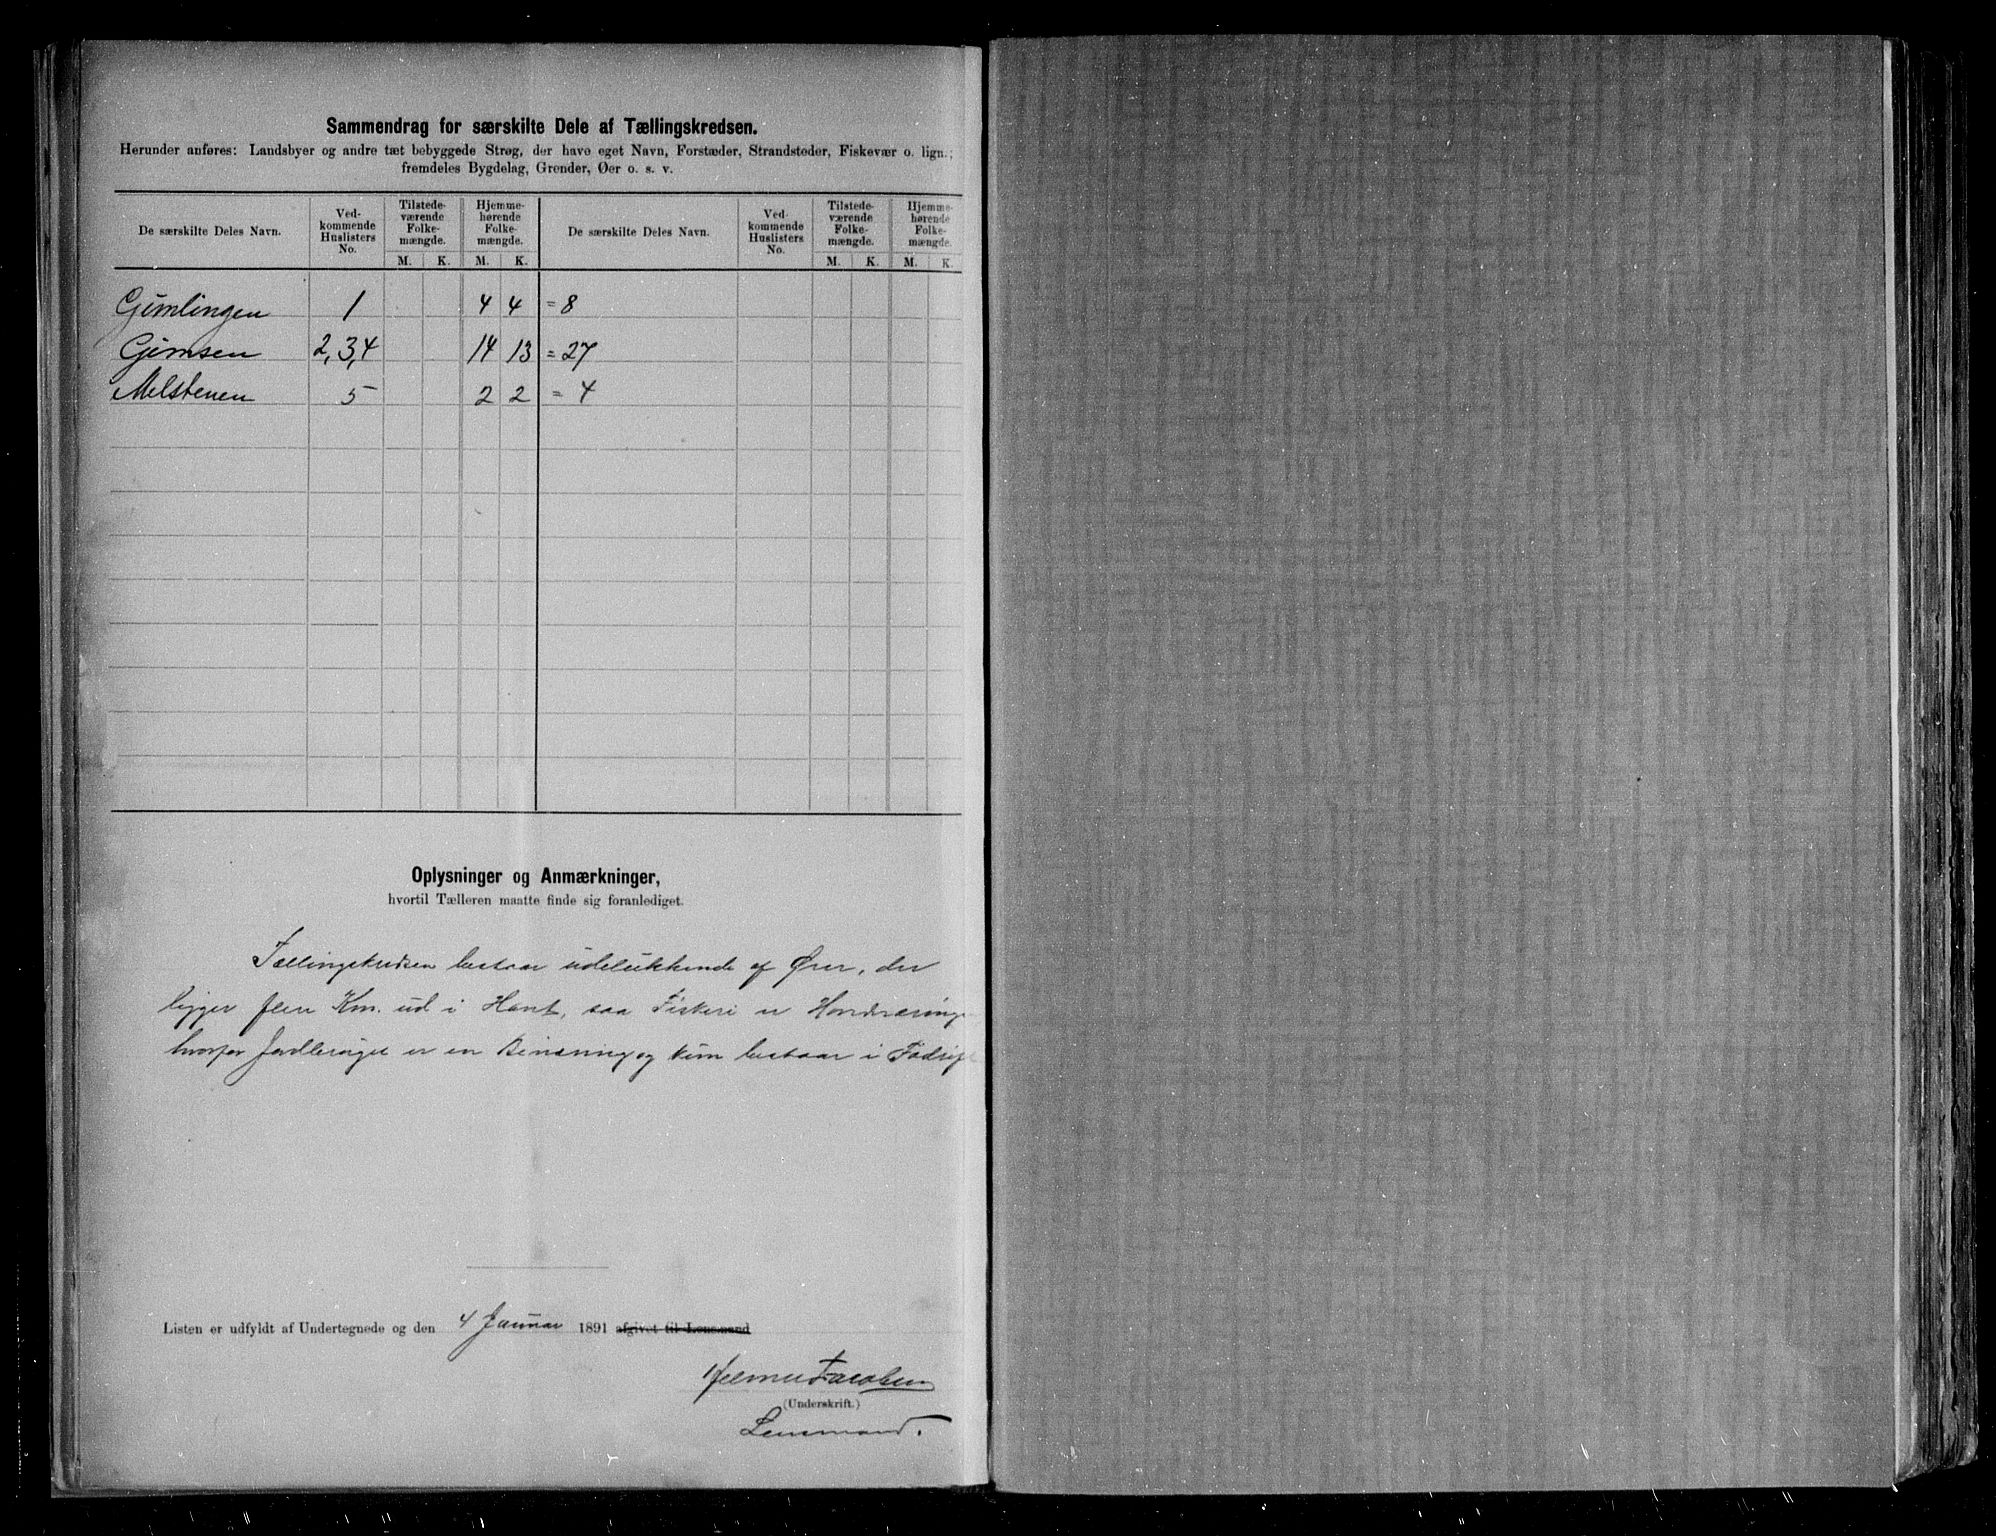 Sammendrag for særskilte Dele af Tællingskredsen.
Herunder anføres: Landsbyer og andre tæt bebyggede Strøg, der have eget Navn, Forstæder, Strandsteder, Fiskevær o. lign.;
fremdeles Bygdelag, Grender, Øer o. s. v.
De særskilte Deles Navn. Ved-kommende Huslisters No. Tilstede-værende Folke-mængde. Hjemme-hørende Folke-mængde. De særskilte Deles Navn. Ved-kommende Huslisters No. Tilstede-værende Folke-mængde. Hjemme-hørende Folke-mængde.
M. K. M. K. M. K. M. K.
Gimlingen 1 4 4 = 8
Gimsen 2,3,4 14 13 = 27
Melstenen 5 2 2 = 4
Oplysninger og Anmærkninger,
hvortil Tælleren maatte finde sig foranlediget.
Tællingskredsen bestaar udelukkende af Øer, der
ligger flere Km. ud i Havet, saa Fiskeri er Hovednæring
hvorfor Jordbruget er en Binæring og kun bestaar i Fædrift
Listen er udfyldt af Undertegnede og den 4 Januar 1891 afgivet til Lensmand
Jacobsen
(Underskrift.)
Lensmand.